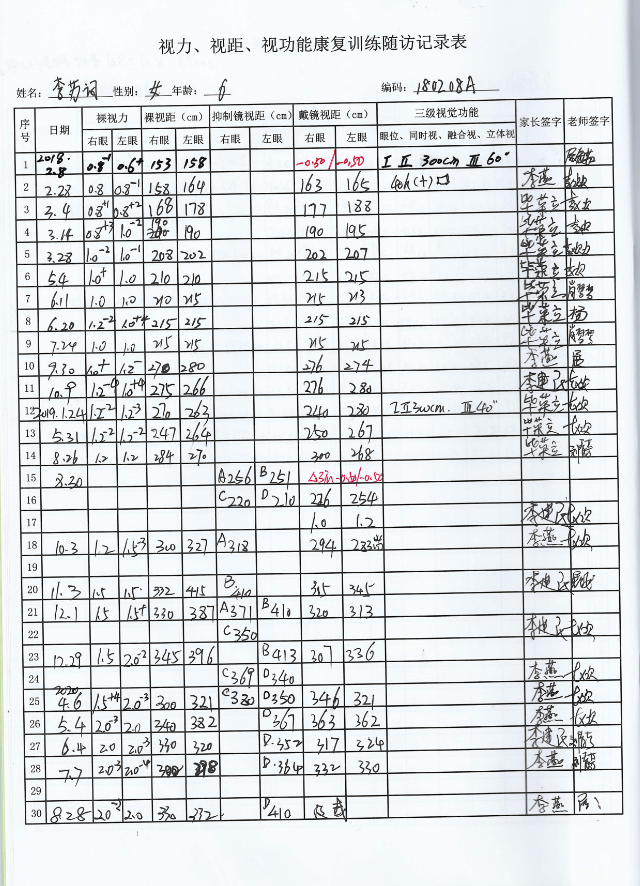 视力、视距、视功能康复训练随访记录表
姓名: 李苏词 性别: 女 年龄: 6 编码: 180208A
序号 日期 裸视力 裸视距(cm) 抑制镜视距(cm) 戴镜视距(cm) 三级视觉功能 家长签字 老师签字
右眼 左眼 右眼 左眼 右眼 左眼 右眼 左眼 眼位、同时视、融合视、立体视
1 2018.2.8 0.8⁻¹ 0.6⁺ 153 158 -0.50/-0.50 I II 300cm III 60"
2 2.28 0.8 0.8⁻¹ 158 164 163 165 李燕
3 3.4 0.8⁺¹ 0.8⁺² 168 178 177 188 毕荣立
4 3.14 0.8⁺³ 1.0⁻² 190 190 190 195 毕荣立
5 3.28 1.0⁻² 1.0⁻¹ 208 202 202 207 毕荣立
6 5.4 1.0⁺ 1.0 210 210 215 215 毕荣立
7 6.11 1.0 1.0 210 215 215 213 毕荣立
8 6.20 1.2⁻² 1.0⁺⁴ 215 215 215 215 毕荣立 杨
9 7.24 1.0 1.0 215 215 215 215 毕荣立
10 9.30 1.0⁺ 1.2⁻ 270 280 276 274 李燕 居
11 10.9 1.2⁻⁴ 1.0⁺⁴ 275 266 276 280 李建民
12 2019.1.24 1.2⁻² 1.2⁻³ 270 263 240 280 I II 300cm. III 40" 毕荣立
13 5.31 1.2⁻² 1.2⁻² 247 264 250 267 毕荣立
14 8.26 1.2 1.2 284 270 300 268 毕荣立
15 8.30 A256 B251 -0.50/-0.50
16 C220 D210 226 254
17 1.0 1.2 李建民
18 10.3 1.2 1.5⁻³ 300 327 A318 294 283 李燕
19
20 11.3 1.5 1.5 332 415 B.410 315 345 李建民
21 12.1 1.5 1.5⁺ 330 387 A371 B410 320 313
22 C350 李建民
23 12.29 1.5 2.0⁻² 345 396 B413 307 336
24 C369 D340 李燕
25 2020.4.6 1.5⁺⁴ 2.0⁻³ 300 321 C380 D350 346 321 李燕
26 5.4 2.0⁻³ 2.0 340 382 D367 363 362 李燕
27 6.4 2.0 2.0⁻³ 330 320 D.352 317 324 李建民
28 7.7 2.0⁻³ 2.0⁻⁴ 300 298 D.364 332 330 李燕
29
30 8.28 2.0⁻² 2.0 330 332 D410 李燕 居